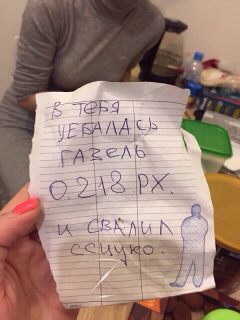 В ТЕБЯ
УЕБАЛАСЬ
ГАЗЕЛЬ
О.218 РХ.
И СВАЛИЛ
ССЦУКО.